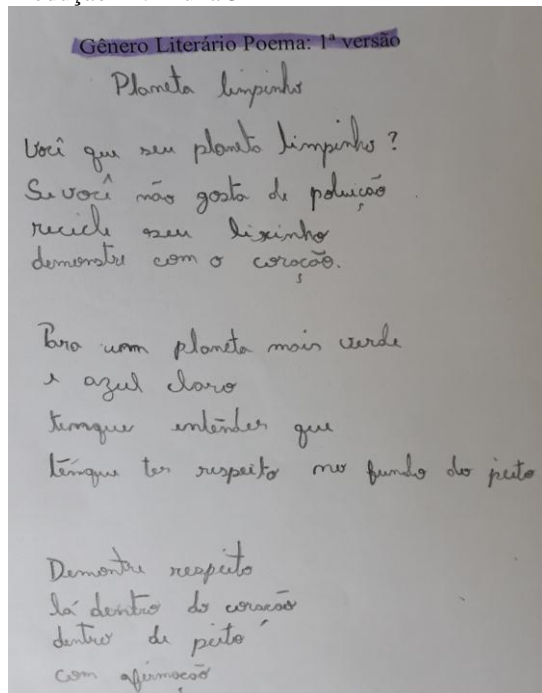 Gênero Literário Poema: 1ª versão
Planeta limpinho
Você que seu planeta limpinho?
Se você não gosta de poluição
recicle seu lixinho
demonstre com o coração.
Para um planeta mais verde
e azul claro
temque entênder que
têmque ter respeito no fundo do peito
Demontre respeito
lá dentro do coração
dentro de peito
com afirmação